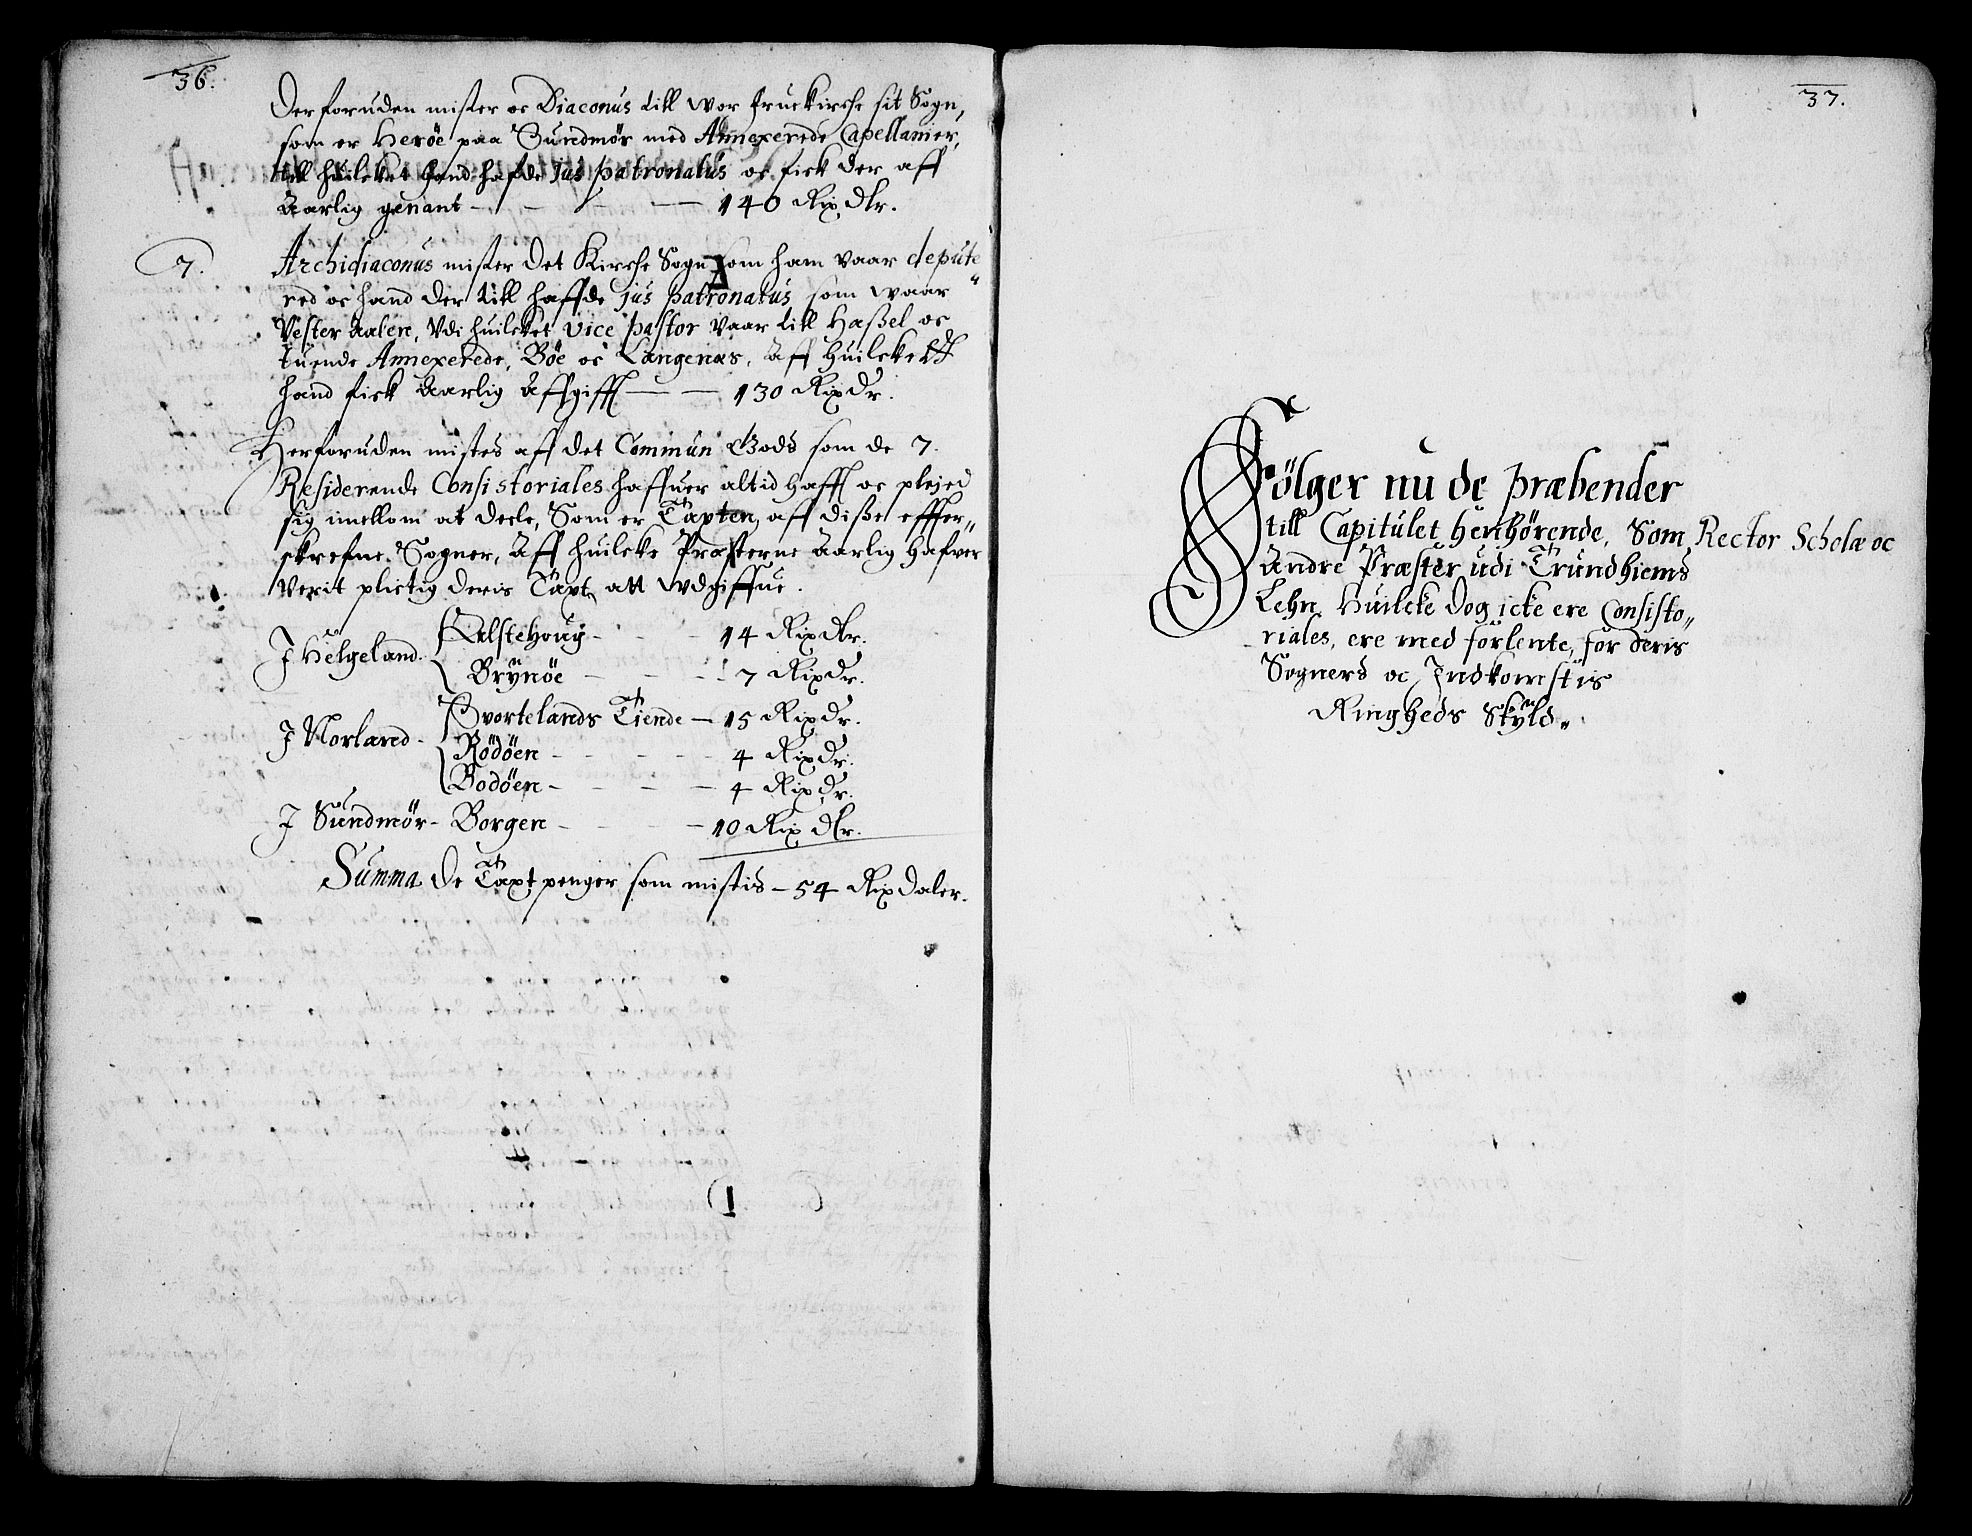 36.
Derforuden mister oc Diaconus till wor fruekirche sit Sogn,
som er Herøe paa Sundmør med Annexerede Capellanier,
till huilcket hand hafde jus patronatus oc fick der aff
Aarlig genant - - - - 140 Rix Dlr.
7.
Archidiaconus mister det Kirche Sogn som ham vaar depute
red oc hand der till haffde jus patronatus som waar
Vester Aalen, Vdi huilcket vice pastor vaar till Haßel oc
tuende Annexerede, Bøe oc Langenæs, Aff huilcket
hand fick Aarlig Affgifft - - 130 Rix Dr.
Herforuden mistes aff det Commun Gods som de 7.
Residerende Consistoriales haffuer altid hafft oc plejed
sig imellom at deele, Som er Taxten aff diße effter„
skrefne Sogner, Aff huilcke Præsterne Aarlig Hafver
Verit plictig deris Taxt att udgiffue.
J Helgeland. Alstehoug - - 14 Rix dlr.
Brÿnöe - - - 7 Rix Dr.
J Norland - Svortelands Tiende - 15 Rix Dr.
Rödöen - - - - 4 Rix Dr.
Bodöen - - - - 4 Rix Dr.
J Sundmör - Borgen - - - 10 Rix dlr.
Summa de Taxt penger som mistis - 54 Rix Daler.
37.
Fölger nu de præbender
till Capitulet henhörende, Som Rector Scholæ oc
Andre Præster udi Trundhiems
Lehn, Huilcke dog icke ere Consisto„
riales, ere med forlente, for deris
Sogners oc Indkomstis
Ringheds Skÿld„